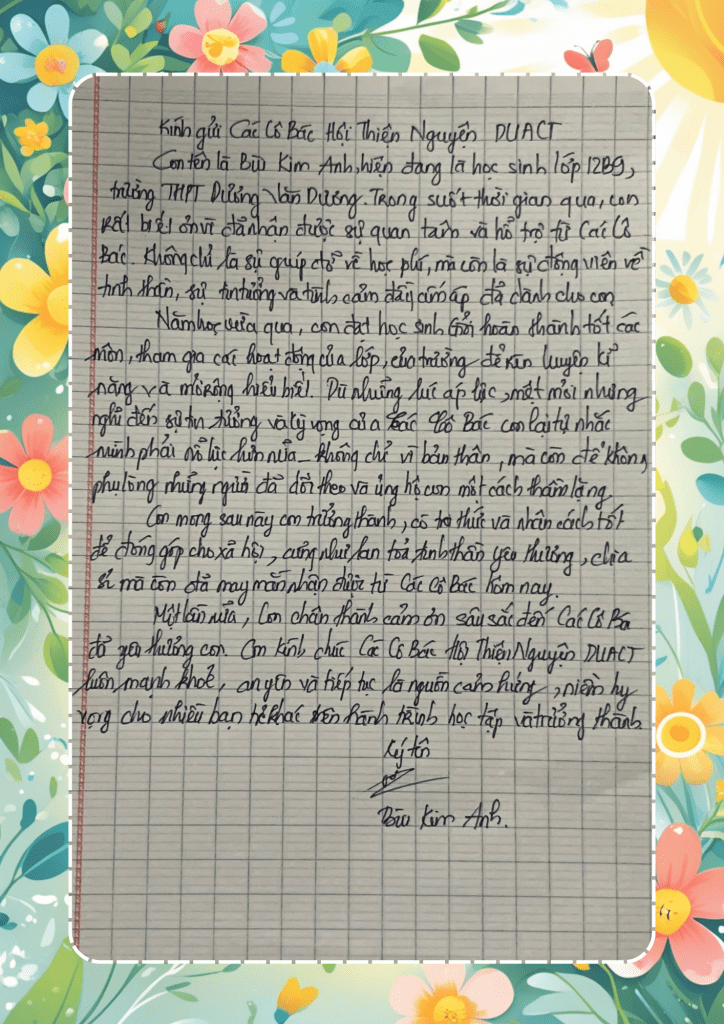 Kính gửi Các Cô Bác Hội Thiện Nguyện DUACT
Con tên là Bửu Kim Anh, hiện đang là học sinh lớp 12B9,
trường THPT Dương Văn Dương. Trong suốt thời gian qua, con
rất biết ơn vì đã nhận được sự quan tâm và hỗ trợ từ Các Cô
Bác. Không chỉ là sự giúp đỡ về học phí, mà còn là sự động viên về
tinh thần, sự tin tưởng và tình cảm đầy ấm áp đã dành cho con
Năm học vừa qua, con đạt học sinh Giỏi hoàn thành tốt các
môn, tham gia các hoạt động của lớp, của trường để rèn luyện kĩ
năng và mở rộng hiểu biết. Dù những lúc áp lực, mệt mỏi nhưng
nghĩ đến sự tin tưởng và kỳ vọng của Các Cô Bác con lại tự nhắc
mình phải nỗ lực hơn nữa_ không chỉ vì bản thân, mà còn để không
phụ lòng những người đã dõi theo và ủng hộ con một cách thầm lặng
Con mong sau này con trưởng thành, có tri thức và nhân cách tốt
để đóng góp cho xã hội, cũng như lan toả tinh thần yêu thương, chia
sẻ mà con đã may mắn nhận được từ Các Cô Bác hôm nay.
Một lần nữa, Con chân thành cảm ơn sâu sắc đến Các Cô Bá
đã yêu thương con. Con kính chúc Các Cô Bác Hội Thiện Nguyện DUACT
luôn mạnh khoẻ, an yên và tiếp tục là nguồn cảm hứng, niềm hy
vọng cho nhiều bạn trẻ khác trên hành trình học tập và trưởng thành
Ký tên
Bửu Kim Anh.